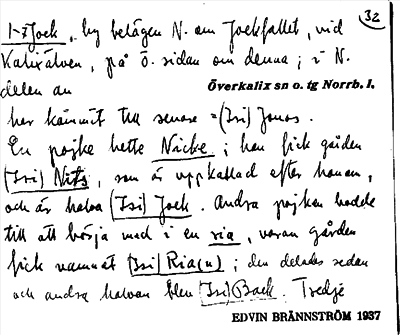 32
I-Jock, by belägen N. om Jockfallet, vid
Kalixälven, på ö. sidan om denna; i N.
delen av
Överkalix sn o. tg Norrb. l.
har kommit till senare = (Isi) Jonos.
En pojke hette Nicke; han fick gården
(Isi) Nits, som är uppkallad efter honom,
och är halva (Isi) Jock. Andra pojken hadde
till att börja med i en ria, varav gården
fick namnet (Isi) Ria(n); den delades sedan
och andra halvan blev (Isi) Back. Tredje
EDVIN BRÄNNSTRÖM 1937